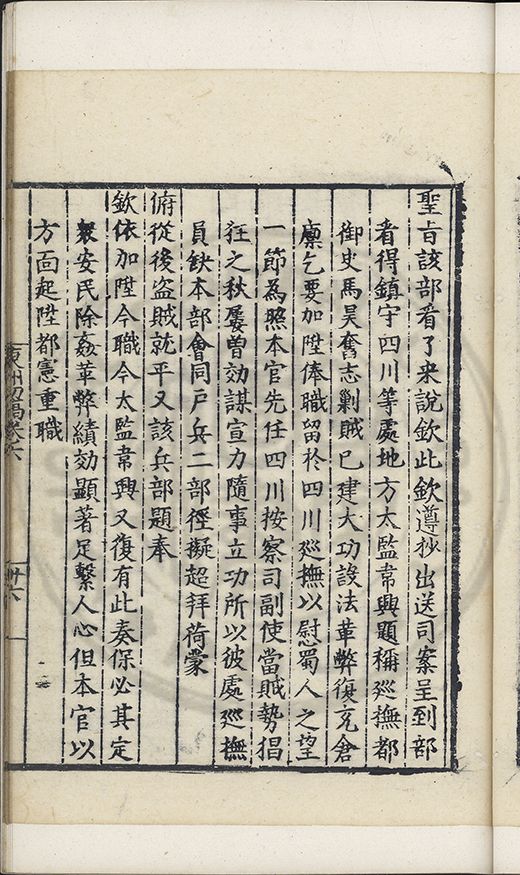 聖旨該部看了来說欽此欽遵抄出送司案呈到部
看得鎮守四川等處地方太監韋興題稱廵撫都
御史馬昊奮志剿賊已建大功設法革弊復充倉
廪乞要加陞俸職留於四川廵撫以慰蜀人之望
一節為照本官先任四川按察司副使當賊勢猖
狂之秋屡曽効謀宣力隨事立功所以彼處廵撫
員缺本部會同戶兵二部徑擬超拜荷蒙
俯從後盗賊就平又該兵部題奉
欽依加陞今職今太監韋興又復有此奏保必其定
衆安民除姦革弊績効顯著足繫人心但本官以
方面起陞都憲重職
卷六
卅六